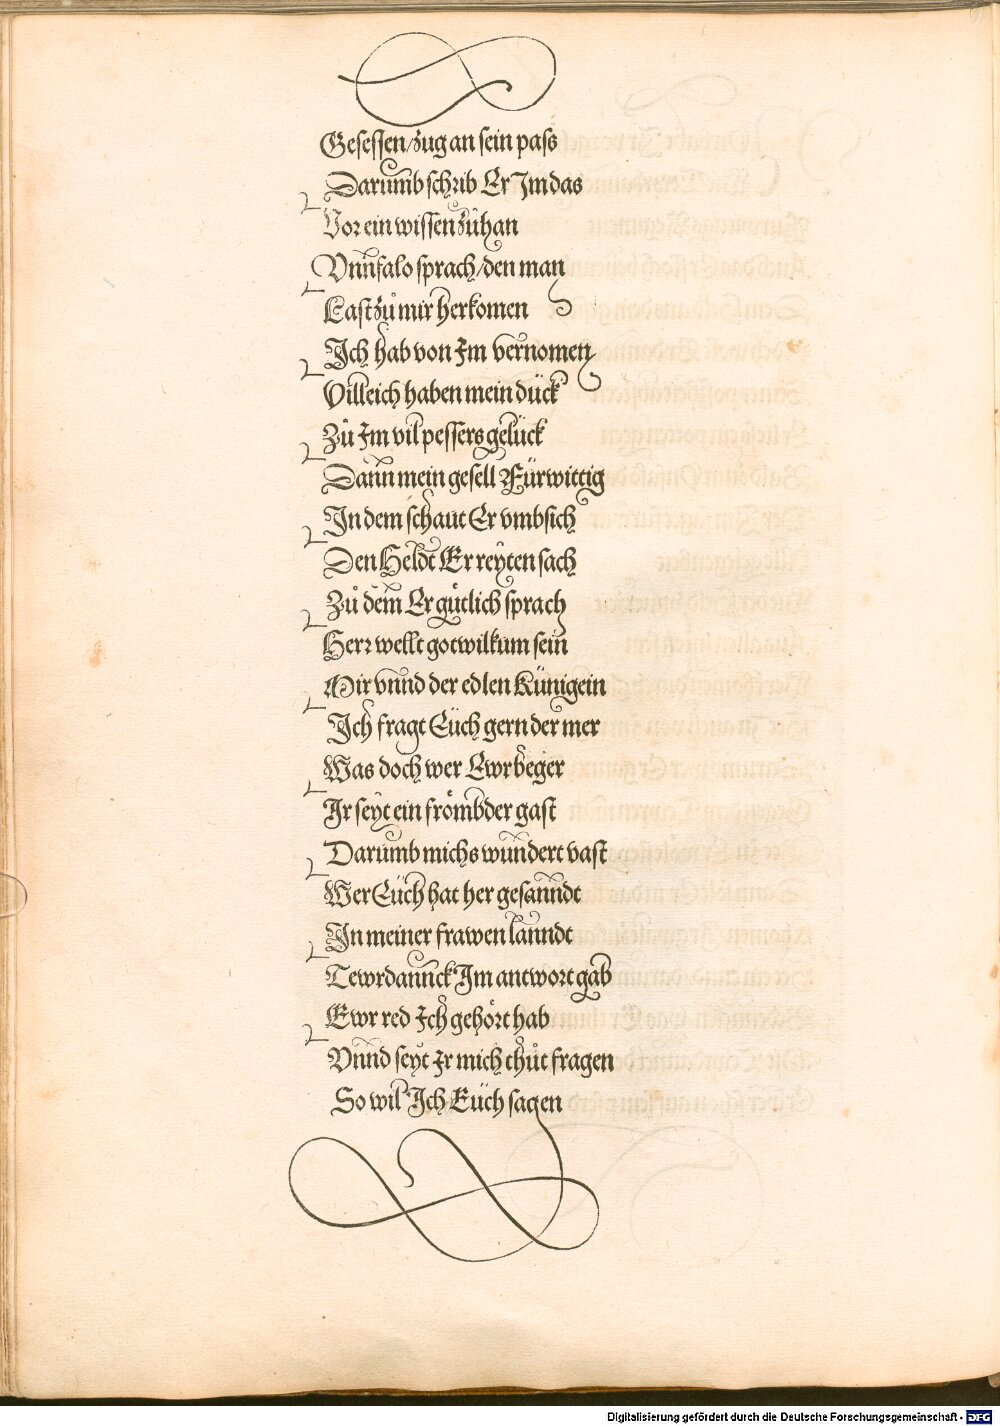 Gesessen/zug an sein pass
Darumb schrib Er Im das
Vor ein wissen zůhan
Vnnfalo sprach/den man
Last zů mir herkomen
Ich hab von Im vernomen
Villeich haben mein dück
Zů Im vil pessers gelück
Dann mein gesell Fürwittig
In dem schaut Er vmbsich
Den Heldt Er reyten sach
Zů dem Er gůtlich sprach
Herr wellt gotwilkum sein
Mir vnnd der edlen Künigein
Ich fragt Eüch gern der mer
Was doch wer Ewr beger
Ir seyt ein frömbder gast
Darumb michs wundert vast
Wer Eüch hat her gesanndt
In meiner frawen lanndt
Tewrdannck Im antwort gab
Ewr red Ich gehört hab
Vnnd seyt Ir mich thůt fragen
So wil Ich Eüch sagen
Digitalisierung gefördert durch die Deutsche Forschungsgemeinschaft - DFG